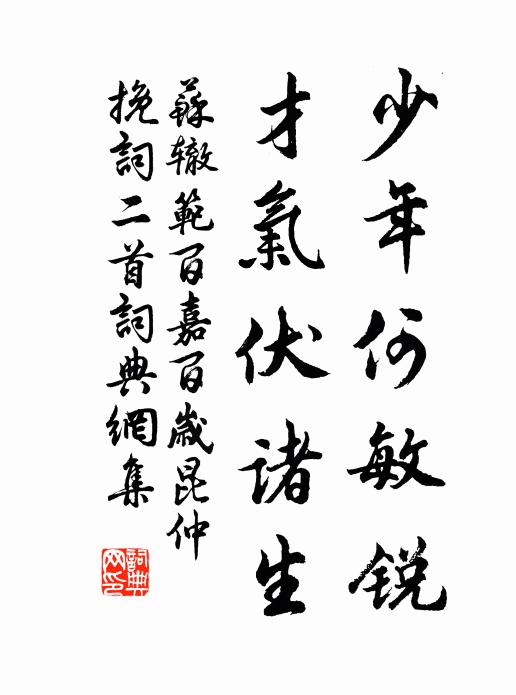 少年何敏锐
才氣伏诸生
蘇辙範百嘉百歲昆仲
挽詞二首詞典網集
詞典网印